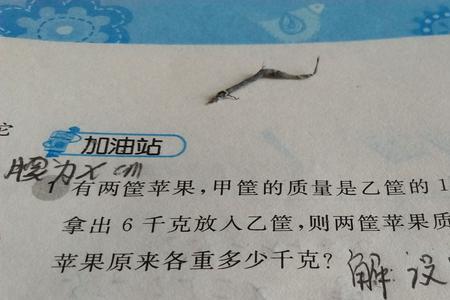 它
加油站
腰为x cm
有两筐苹果，甲筐的质量是乙筐的1
拿出6千克放入乙筐，则两筐苹果质
苹果原来各重多少千克？ 解 设